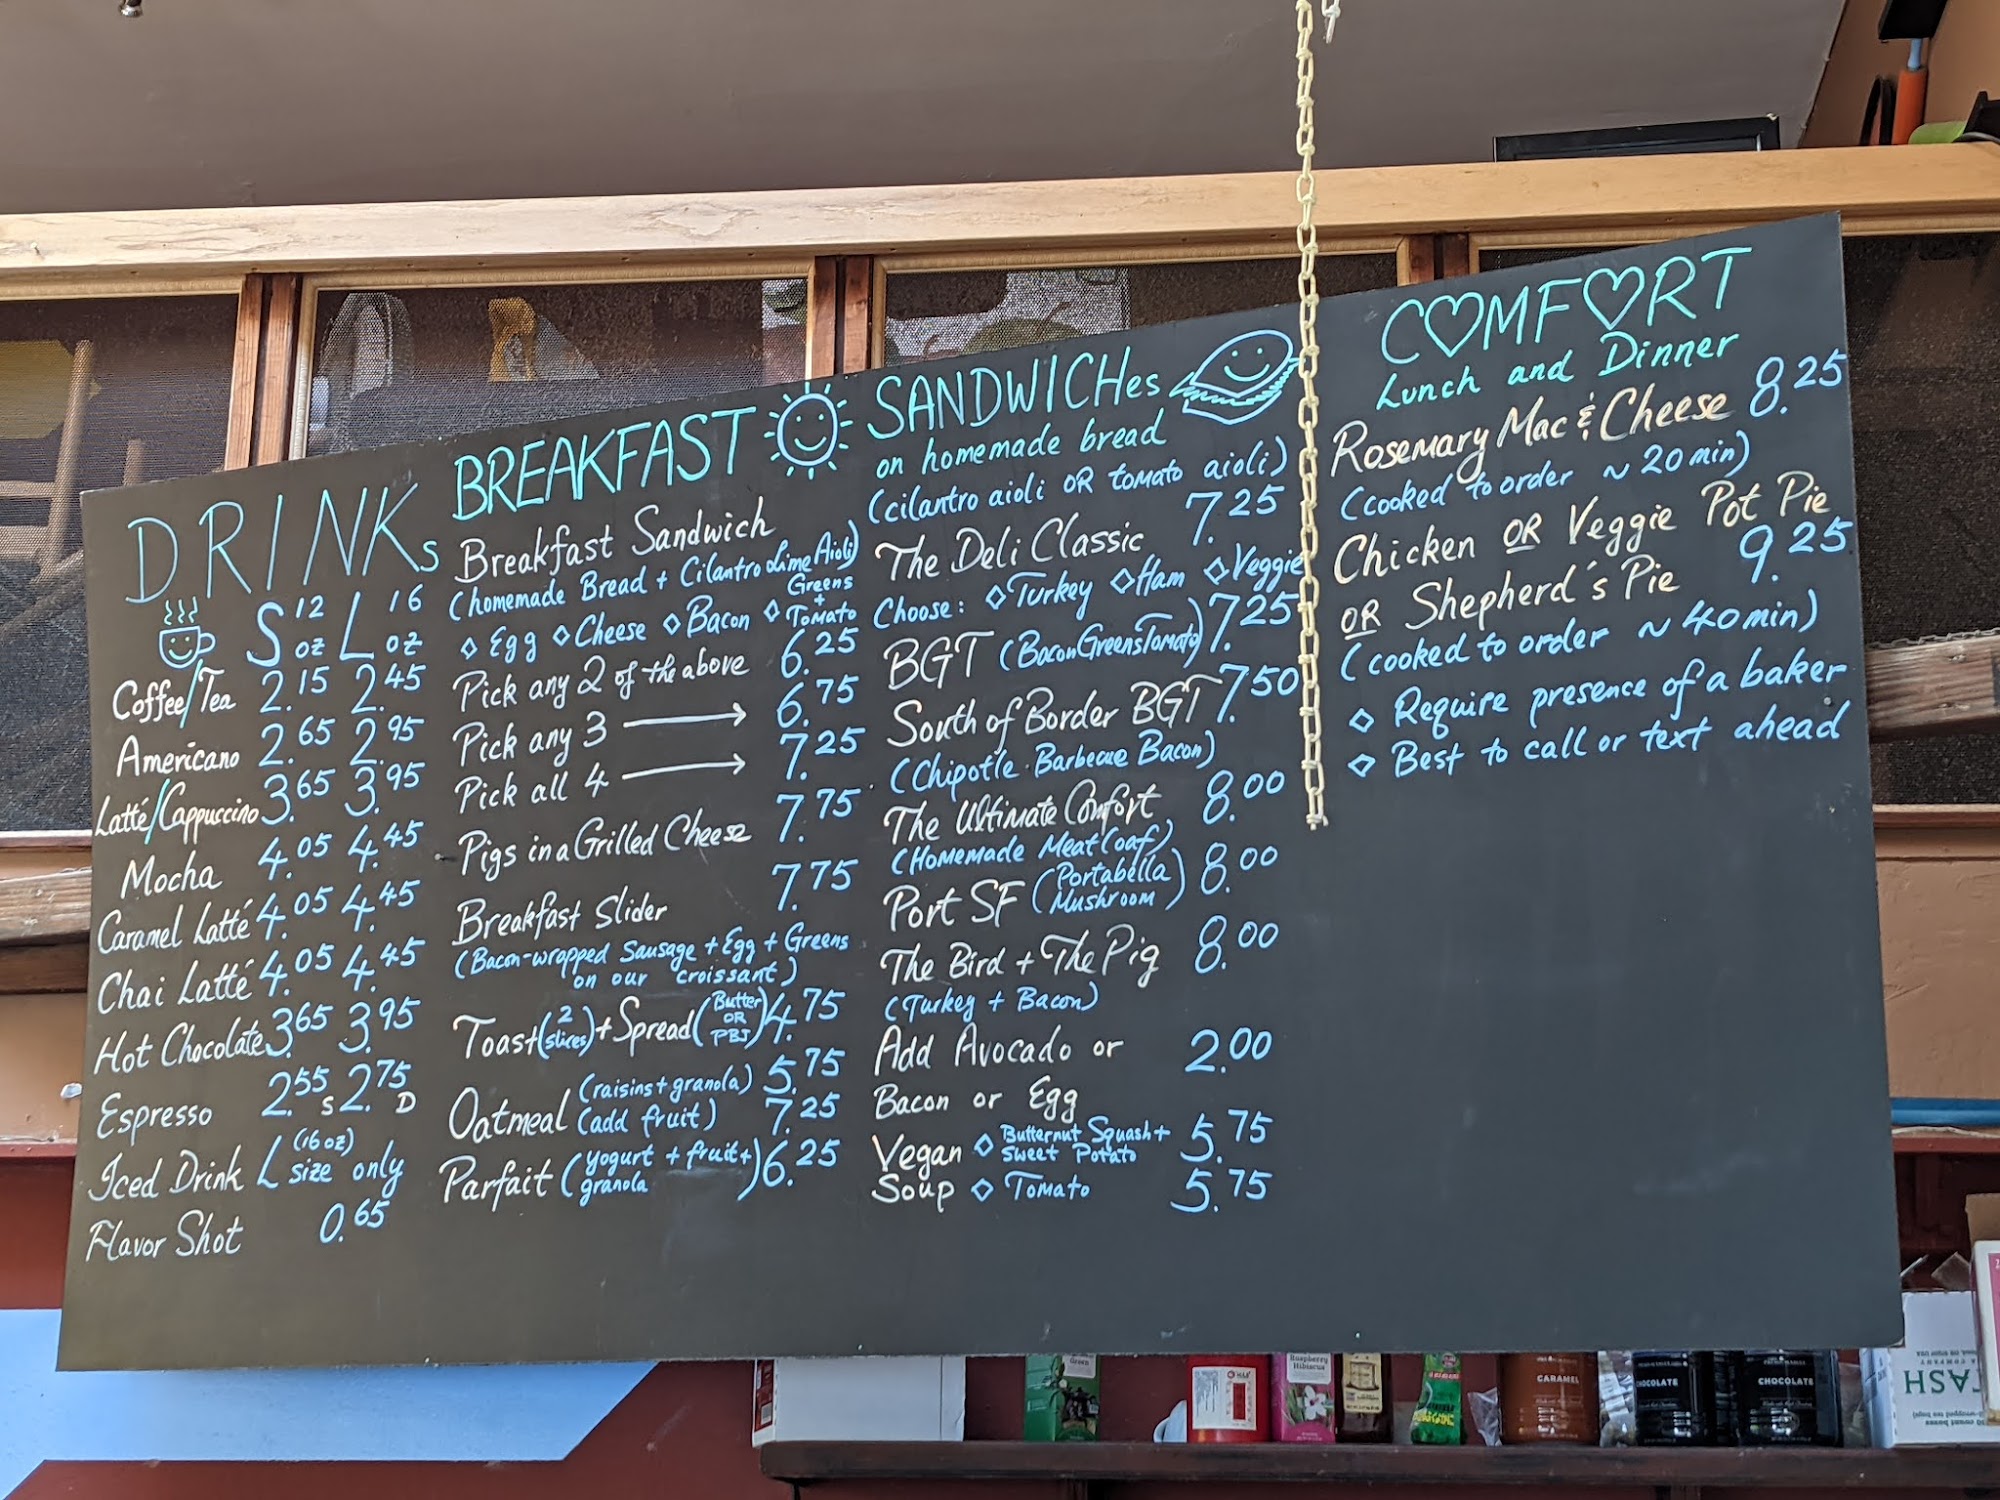 DRINKs
S 12 oz L 16 oz
Coffee/Tea 2.15 2.45
Americano 2.65 2.95
Latté/Cappuccino 3.65 3.95
Mocha 4.05 4.45
Caramel Latté 4.05 4.45
Chai Latté 4.05 4.45
Hot Chocolate 3.65 3.95
Espresso 2.55 S 2.75 D
Iced Drink L (16 oz) size only
Flavor Shot 0.65
BREAKFAST
Breakfast Sandwich
(homemade Bread + Cilantro Lime Aioli)
◇ Egg ◇ Cheese ◇ Bacon ◇ Greens + Tomato
Pick any 2 of the above 6.25
Pick any 3 → 6.75
Pick all 4 → 7.25
Pigs in a Grilled Cheese 7.75
Breakfast Slider 7.75
(Bacon-wrapped Sausage + Egg + Greens
on our croissant)
Toast (2 slices) + Spread (Butter OR PBJ) 4.75
Oatmeal (raisins + granola) 5.75
(add fruit) 7.25
Parfait (yogurt + fruit + granola) 6.25
SANDWICHes
on homemade bread
(cilantro aioli OR tomato aioli)
The Deli Classic 7.25
Choose: ◇ Turkey ◇ Ham ◇ Veggie
BGT (Bacon Greens Tomato) 7.25
South of Border BGT 7.50
(Chipotle Barbecue Bacon)
The Ultimate Comfort 8.00
(Homemade Meatloaf)
Port SF (Portabella Mushroom) 8.00
The Bird + The Pig 8.00
(Turkey + Bacon)
Add Avocado or 2.00
Bacon or Egg
Vegan ◇ Butternut Squash + Sweet Potato 5.75
Soup ◇ Tomato 5.75
COMFORT
Lunch and Dinner
Rosemary Mac & Cheese 8.25
(cooked to order ~ 20 min)
Chicken OR Veggie Pot Pie
OR Shepherd's Pie 9.25
(cooked to order ~ 40 min)
◇ Require presence of a baker
◇ Best to call or text ahead
Green
Raspberry
Hibiscus
CARAMEL
CHOCOLATE
CHOCOLATE
TASH